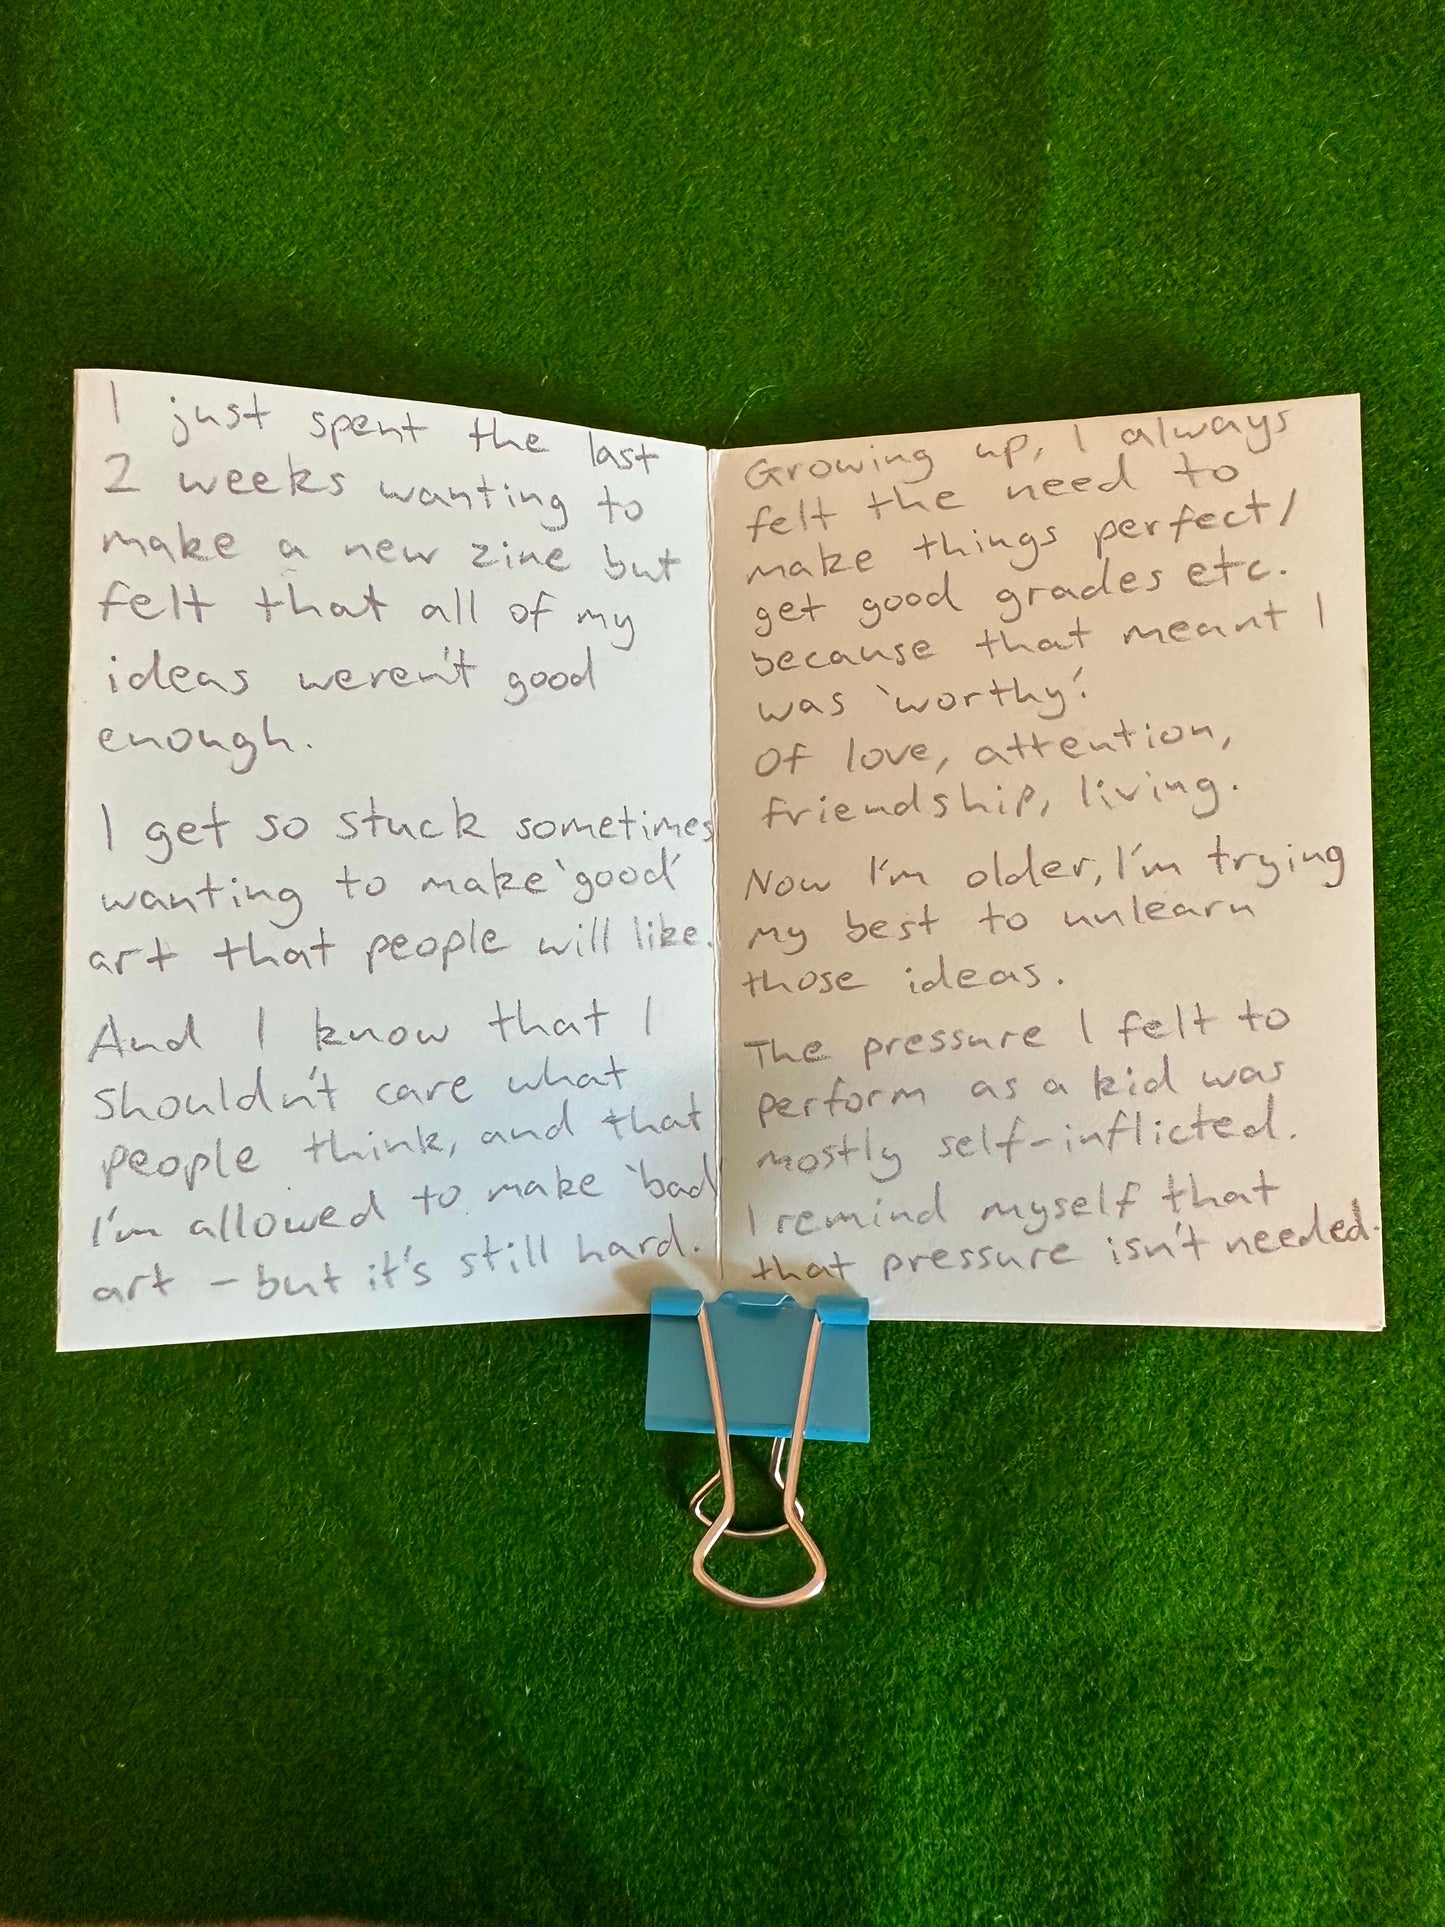 I just spent the last
2 weeks wanting to
make a new zine but
felt that all of my
ideas weren't good
enough.
I get so stuck sometimes
wanting to make 'good'
art that people will like.
And I know that I
shouldn't care what
people think, and that
I'm allowed to make 'bad'
art - but it's still hard.
Growing up, I always
felt the need to
make things perfect/
get good grades etc.
because that meant I
was 'worthy'.
Of love, attention,
friendship, living.
Now I'm older, I'm trying
my best to unlearn
those ideas.
The pressure I felt to
perform as a kid was
mostly self-inflicted.
I remind myself that
that pressure isn't needed.